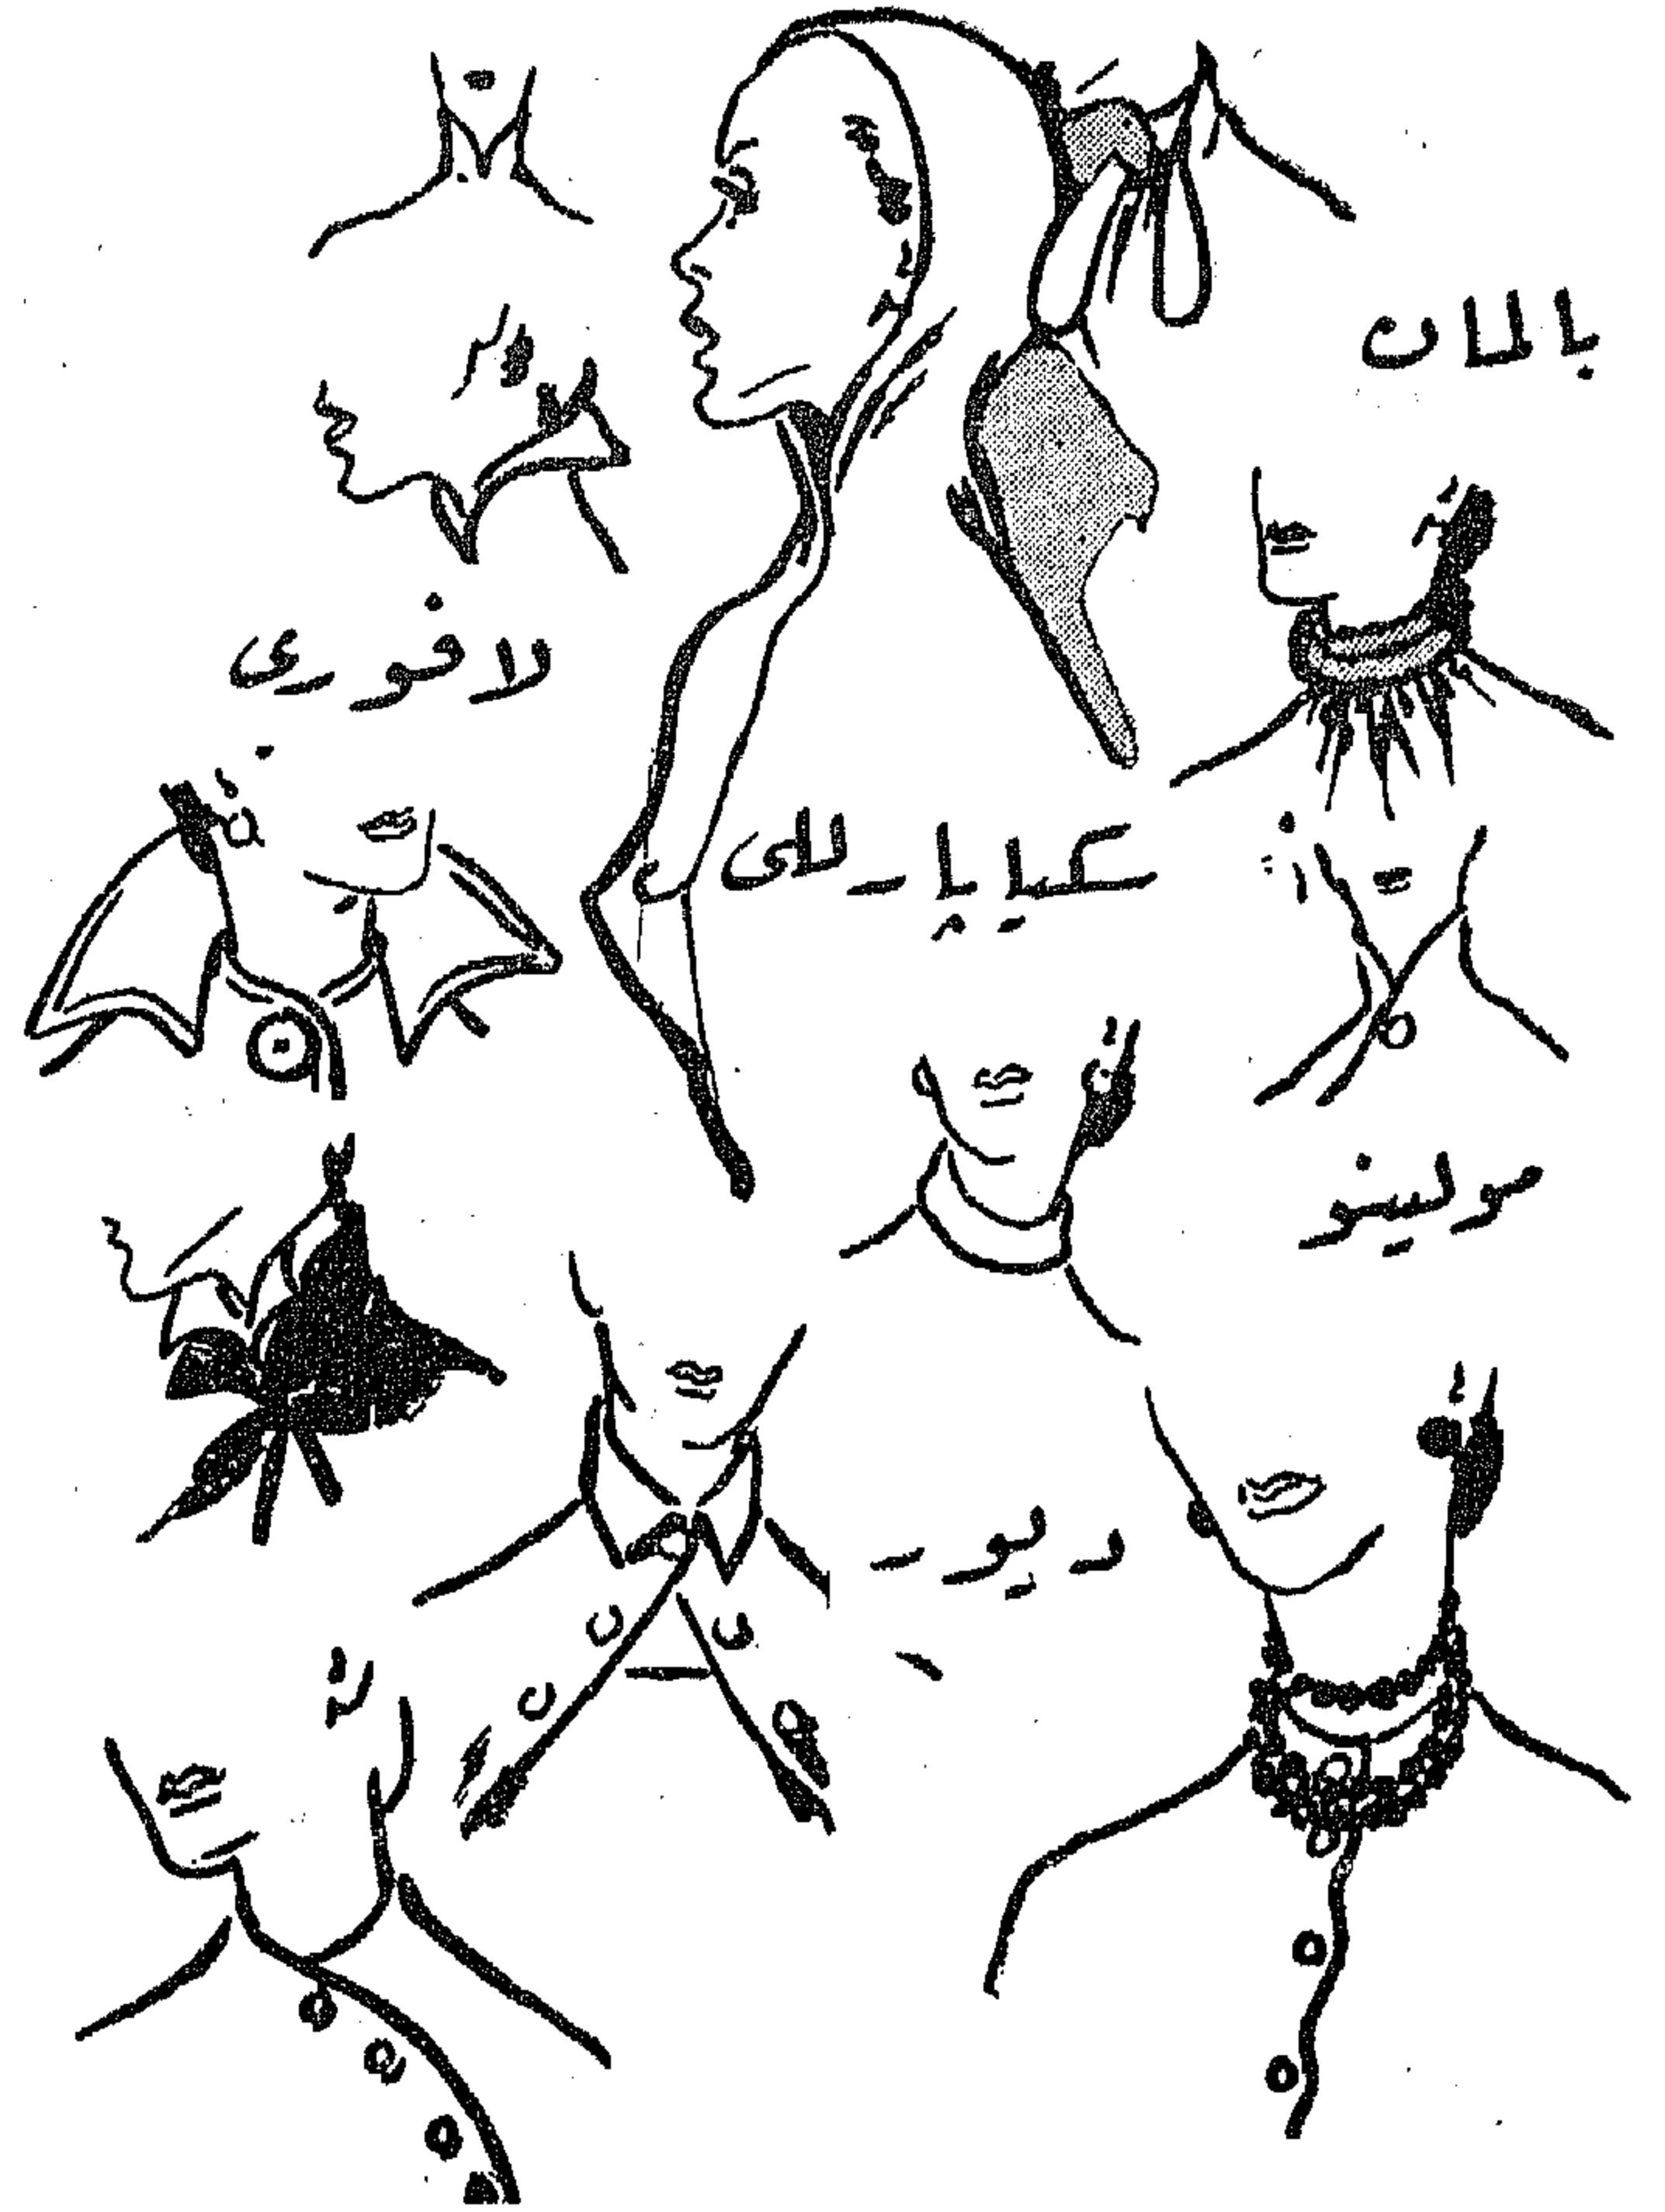 بالمان
لافورى
سكياپارللى
مولينو
ديور